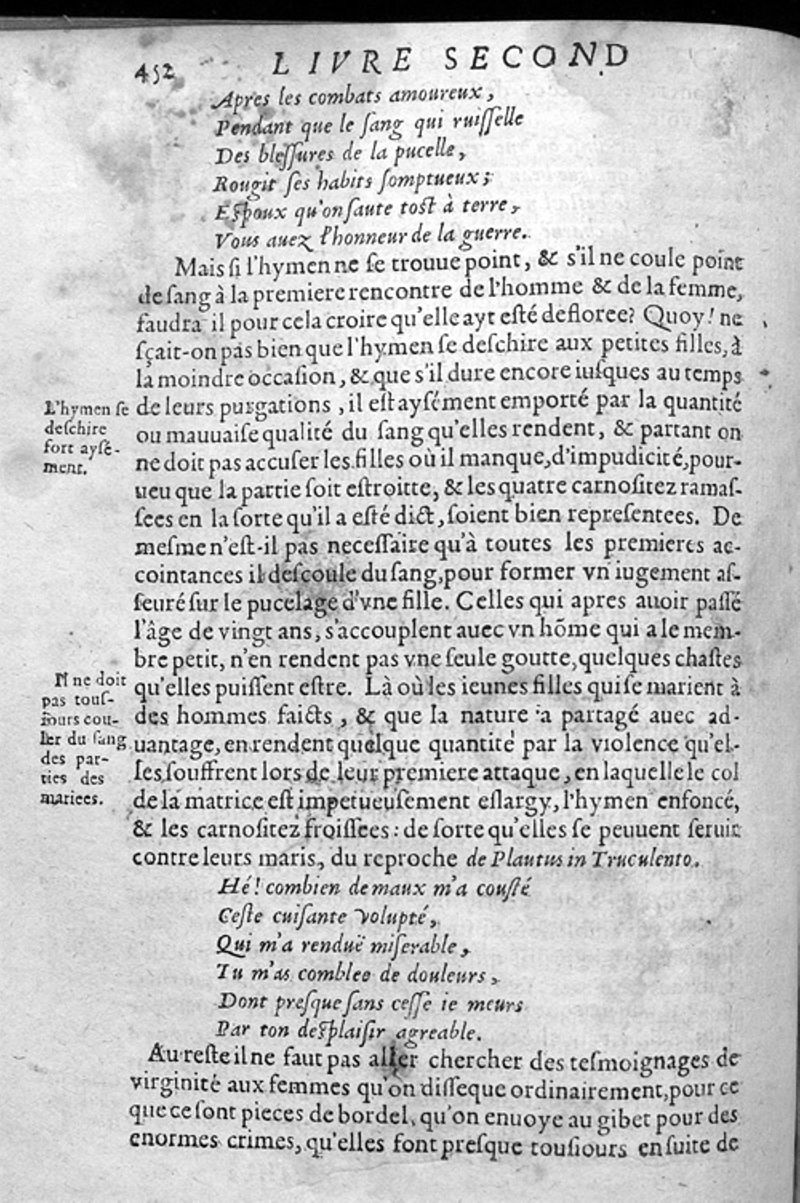 452 LIVRE SECOND
Apres les combats amoureux,
Pendant que le ſang qui ruiſſelle
Des bleſſures de la pucelle,
Rougit ſes habits ſomptueux;
Eſpoux qu'on ſaute toſt à terre,
Vous auez l'honneur de la guerre.
Mais ſi l'hymen ne ſe trouue point, & s'il ne coule point
de ſang à la premiere rencontre de l'homme & de la femme,
faudra il pour cela croire qu'elle ayt eſté defloree? Quoy! ne
ſçait-on pas bien que l'hymen ſe deſchire aux petites filles, à
la moindre occaſion, & que s'il dure encore iuſques au temps
de leurs purgations, il eſt ayſément emporté par la quantité
ou mauuaiſe qualité du ſang qu'elles rendent, & partant on
ne doit pas accuſer les filles où il manque, d'impudicité, pour-
ueu que la partie ſoit eſtroitte, & les quatre carnoſitez ramaſ-
ſees en la ſorte qu'il a eſté dict, ſoient bien repreſentees. De
meſme n'eſt-il pas neceſſaire qu'à toutes les premieres ac-
cointances il deſcoule du ſang, pour former vn iugement aſ-
ſeuré ſur le pucelage d'vne fille. Celles qui apres auoir paſſé
l'âge de vingt ans, s'accouplent auec vn hõme qui a le mem-
bre petit, n'en rendent pas vne ſeule goutte, quelques chaſtes
qu'elles puiſſent eſtre. Là où les ieunes filles qui ſe marient à
des hommes faicts, & que la nature a partagé auec ad-
uantage, en rendent quelque quantité par la violence qu'el-
les ſouffrent lors de leur premiere attaque, en laquelle le col
de la matrice eſt impetueuſement eſlargy, l'hymen enfoncé,
& les carnoſitez froiſſees: de ſorte qu'elles ſe peuuent ſeruir
contre leurs maris, du reproche de Plautus in Truculento.
Hé! combien de maux m'a couſté
Ceſte cuiſante volupté,
Qui m'a renduë miſerable,
Tu m'as comblee de douleurs,
Dont preſque ſans ceſſe ie meurs
Par ton deſplaiſir agreable.
Au reſte il ne faut pas aller chercher des teſmoignages de
virginité aux femmes qu'on diſſeque ordinairement, pour ce
que ce ſont pieces de bordel, qu'on enuoye au gibet pour des
enormes crimes, qu'elles font preſque touſiours en ſuite de
L'hymen ſe
deſchire
fort ayſé-
ment.
Il ne doit
pas touſ-
iours cou-
ler du ſang
des par-
ties des
mariees.